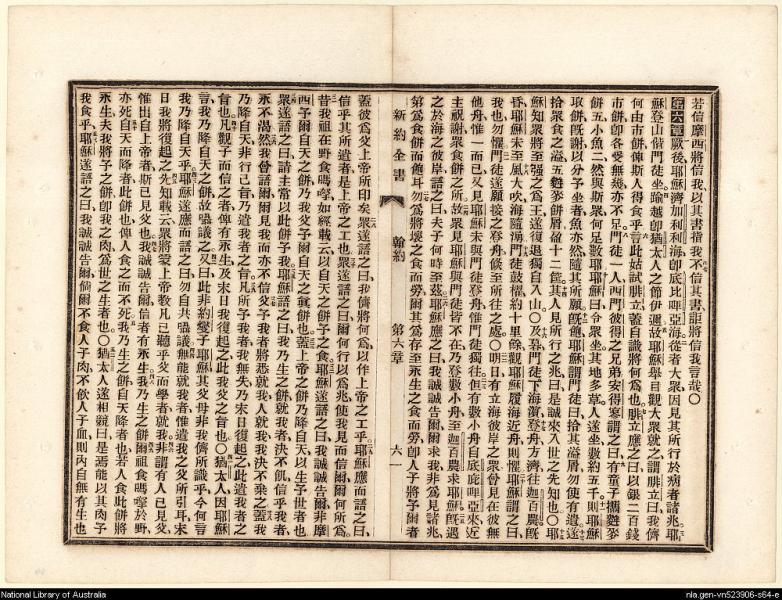 若信摩西將信我以其書指我不信其書詎將信我言哉〇
第六章厥後耶穌濟加利利海卽底比哩亞海從者大衆因見其所行於病者諸兆耶
穌登山偕門徒坐踰越卽猶太人之節伊邇故耶穌舉目觀大衆就之謂腓立曰我儕
何由市餅俾斯人得食乎言此姑試腓立蓋自識將何爲也腓立應之曰以銀二百錢
市餅卽各受無幾亦不足門徒一人西門彼得之兄弟安得寒謂之曰有童子攜麰麥
餅五小魚二然與斯衆何足數耶耶穌曰令衆坐其地多草人遂坐數約五千則耶穌
取餅旣謝以分予坐者魚亦然隨其所願旣飽耶穌謂門徒曰拾其溢屑勿使有遺遂
拾衆食之溢五麰麥餅屑盈十二筐其人見所行之兆曰是誠來入世之先知也〇耶
穌知衆將至强之爲王遂復退獨自入山〇及暮門徒下海濱登舟方濟往迦百農旣
昏耶穌未至風大吹海隨湧門徒鼓櫂約十里餘觀耶穌履海近舟則懼耶穌謂之曰
我也勿懼門徒遂願接之登舟倐至所往之處〇明日有立海彼岸之衆曾見在彼無
他舟惟一而已又見耶穌未與門徒登舟惟門徒獨往但有數小舟自底庇哩亞來近
主祝謝衆食餅之所故衆見耶穌與門徒皆不在乃登數小舟至迦百農求耶穌旣遇
之於海之彼岸語之曰夫子何時至茲耶穌應之曰我誠誠告爾爾求我非爲見諸兆
第爲食餅而飽耳勿爲將壞之食而勞爾其爲存至永生之食而勞卽人子將予爾者
新約全書 翰約 第六章 六一
蓋彼爲父上帝所印矣衆遂語之曰我儕將何爲以作上帝之工乎耶穌應而語之曰
信乎其所遣者是上帝之工也衆遂語之曰爾何行以爲兆使我見而信爾爾何所爲
昔我祖在野食嗎嗱如經載云以自天之餅予之食耶穌遂語之曰我誠誠告爾非摩
西予爾自天之餅乃我父予爾自天之眞餅也蓋上帝之餅乃降自天以生予世者也
衆遂語之曰請主常以此餅予我耶穌語之曰我乃生之餅就我者決不飢信乎我者
永不渴然我曾語爾爾見我而亦不信父予我者將悉就我人就我我決不棄之蓋我
乃降自天非行己旨乃遣我者之旨凡所予我者我無失乃末日復起之此遣我者之
旨也凡觀子而信之者俾有永生及末日我復起之此我父之旨也〇猶太人因耶穌
言我乃降自天之餅故嗫議之又曰此非約瑟子耶穌其父母非我儕所識乎今何言
我乃降自天乎耶穌遂應而語之曰勿自共嗫議無能就我者惟遣我之父所引耳末
日我將復起之先知載云衆將蒙上帝教凡已聽乎父而學者就我我非謂有人已見父
惟出自上帝者斯已見父也我誠誠告爾信者有永生我乃生之餅爾祖食嗎嗱於野
亦死自天而降者此餅也俾人食之而不死我乃生之餅自天降者也若人食此餅將
永生夫我將予之餅卽我之肉爲世之生者也〇猶太人遂相競曰是焉能以其肉予
我食乎耶穌遂語之曰我誠誠告爾倘爾不食人子肉不飲人子血則內自無有生也
National Library of Australia
nla.gen-vn523906-s64-e